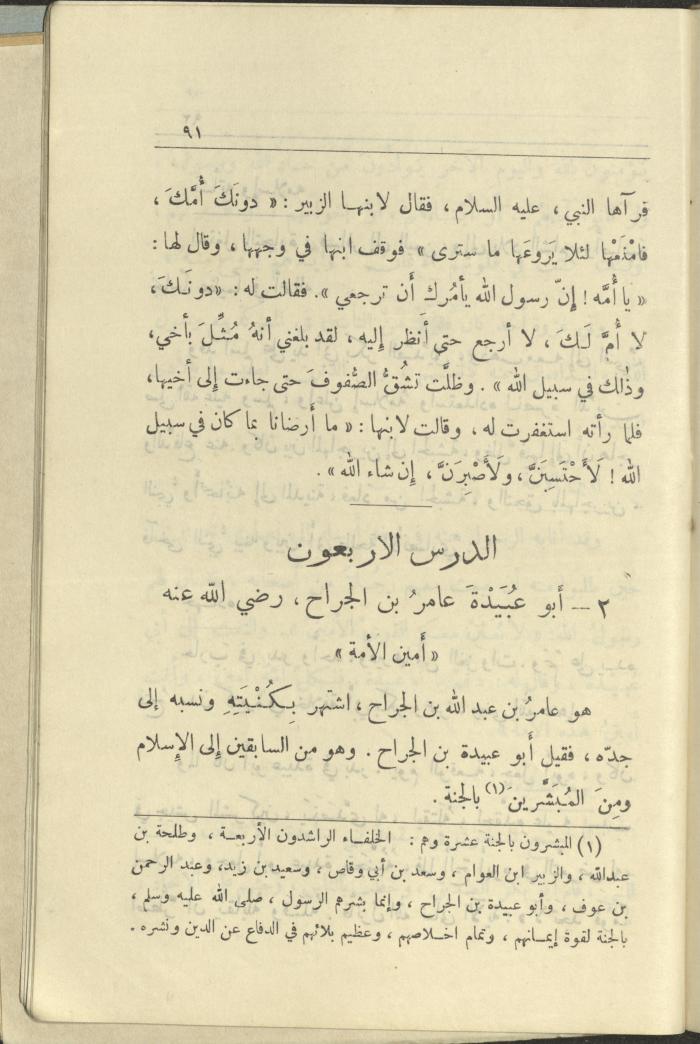 ٩١
فرآها النبي، عليه السلام، فقال لابنهـا الزبير: « دونَكَ أُمَّكَ،
فامْدَعْها لئلا يَروعَها ما سترى » فوقف ابنها في وجهها، وقال لها:
« يا أُمَّه! إِنّ رسول الله يأمُرك أَن ترجعي ». فقالت له: «دونَـكَ،
لا أُمَّ لَـكَ، لا أرجع حتى أَنظر إِليه، لقد بلغني أنهُ مُثِّـلَ بأخي،
وذٰلك في سبيل الله ». وظلَّت تشُقُّ الصُّفوفَ حتى جاءت إِلى أخيها،
فلما رأته استغفرت له، وقالت لابنها: « ما أَرضانا بما كان في سبيل
الله! لَأَحْتَسِبَنَّ، ولَأَصْبِرَنَّ، إِن شاء الله ».
الدرس الاربعون
٢ — أَبو عُبَيْدَةَ عامرُ بن الجراح، رضي اللّه عنه
« أَمين الأمة »
هو عامرُ بن عبد الله بن الجراح، اشتهر بِكُـنْيَتِهِ ونسبه إلى
جدّه، فقيل أَبو عبيدة بن الجراح. وهو من السابقين إِلى الإِسلام
ومِنَ المُبَشَّرينَ (١) بالجنة.
(١) المبشرون بالجنة عشرة وهم: الخلفـاء الراشدون الأربعـة، وطلحة بن
عبدالله، والزبير ابن العوام، وسعد بن أبي وقاص، وسعيد بن زيد، وعبد الرحمن
بن عوف، وأبو عبيدة بن الجراح، وإنما بشرهم الرسول، صلى الله عليه وسلم،
بالجنة لقوة إيمـانهم، وتمام اخـلاصهم، وعظيم بلائهم في الدفاع عن الدين ونشره.